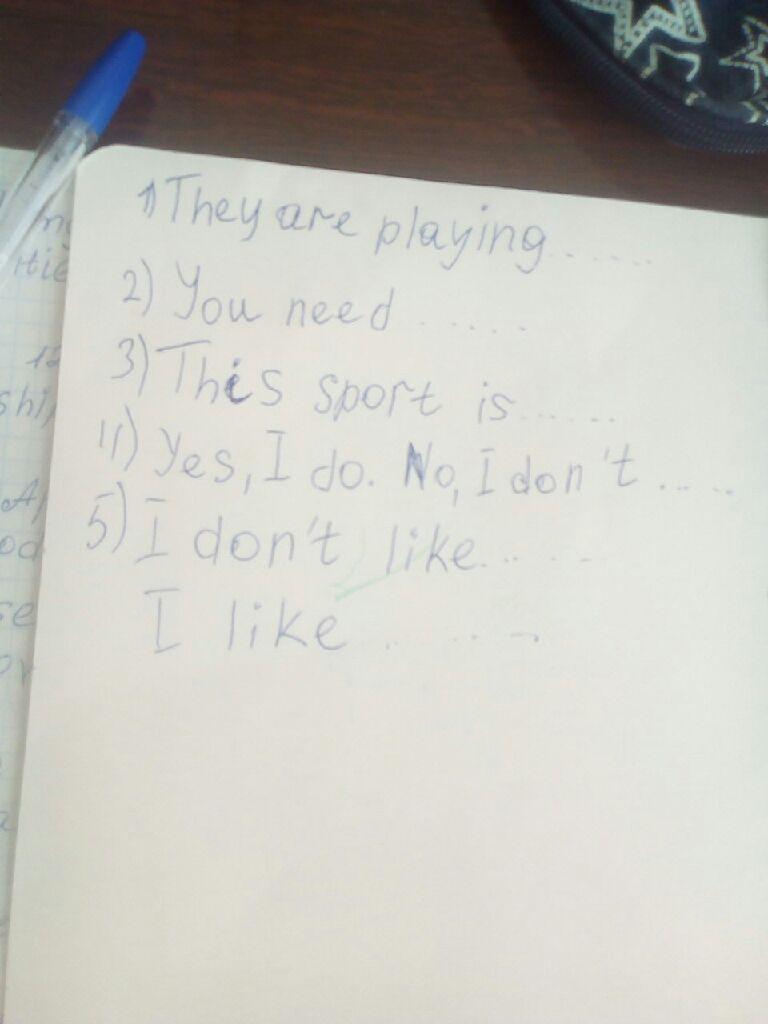 1) They are playing......
2) You need ......
3) This sport is......
4) Yes, I do. No, I don't .....
5) I don't like.....
I like ......